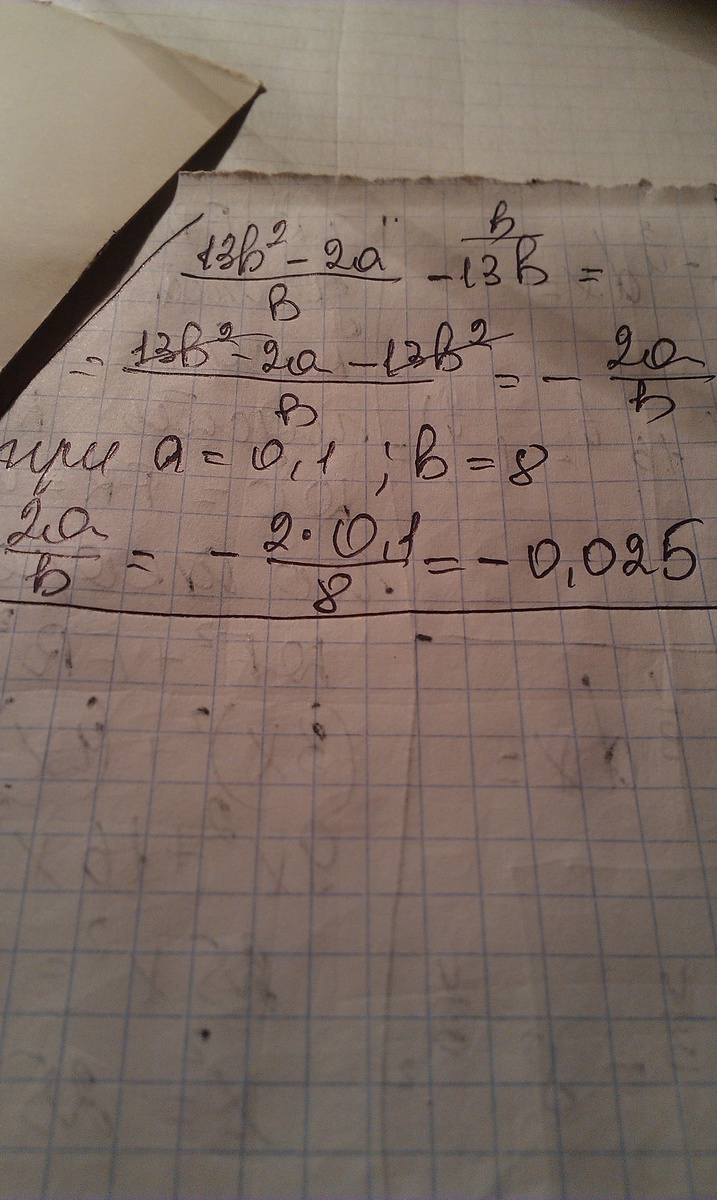 (13b² - 2a)/b - 13b (b =
= (13b² - 2a - 13b²)/b = - 2a/b
при a = 0,1 ; b = 8
2a/b = - 2·0,1/8 = - 0,025